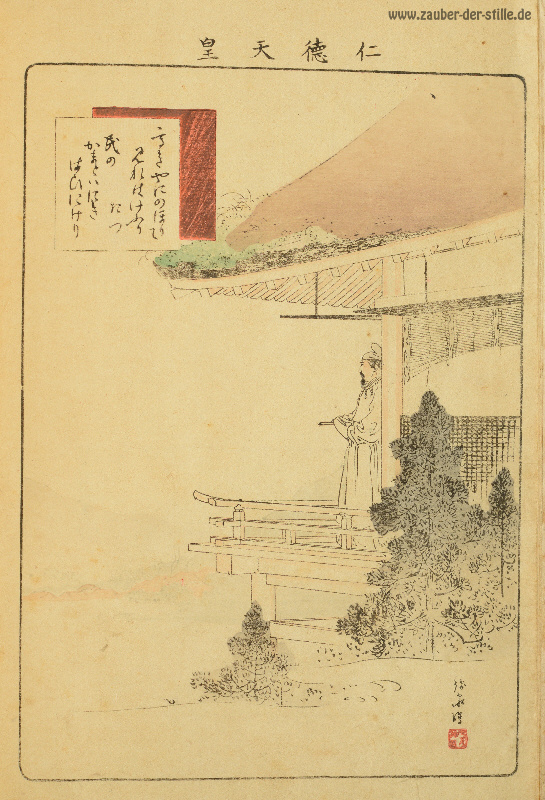 www.zauber-der-stille.de
仁德天皇
高きやにのほりて
見れはけふり
たつ
民の
かまとはにき
はひにけり